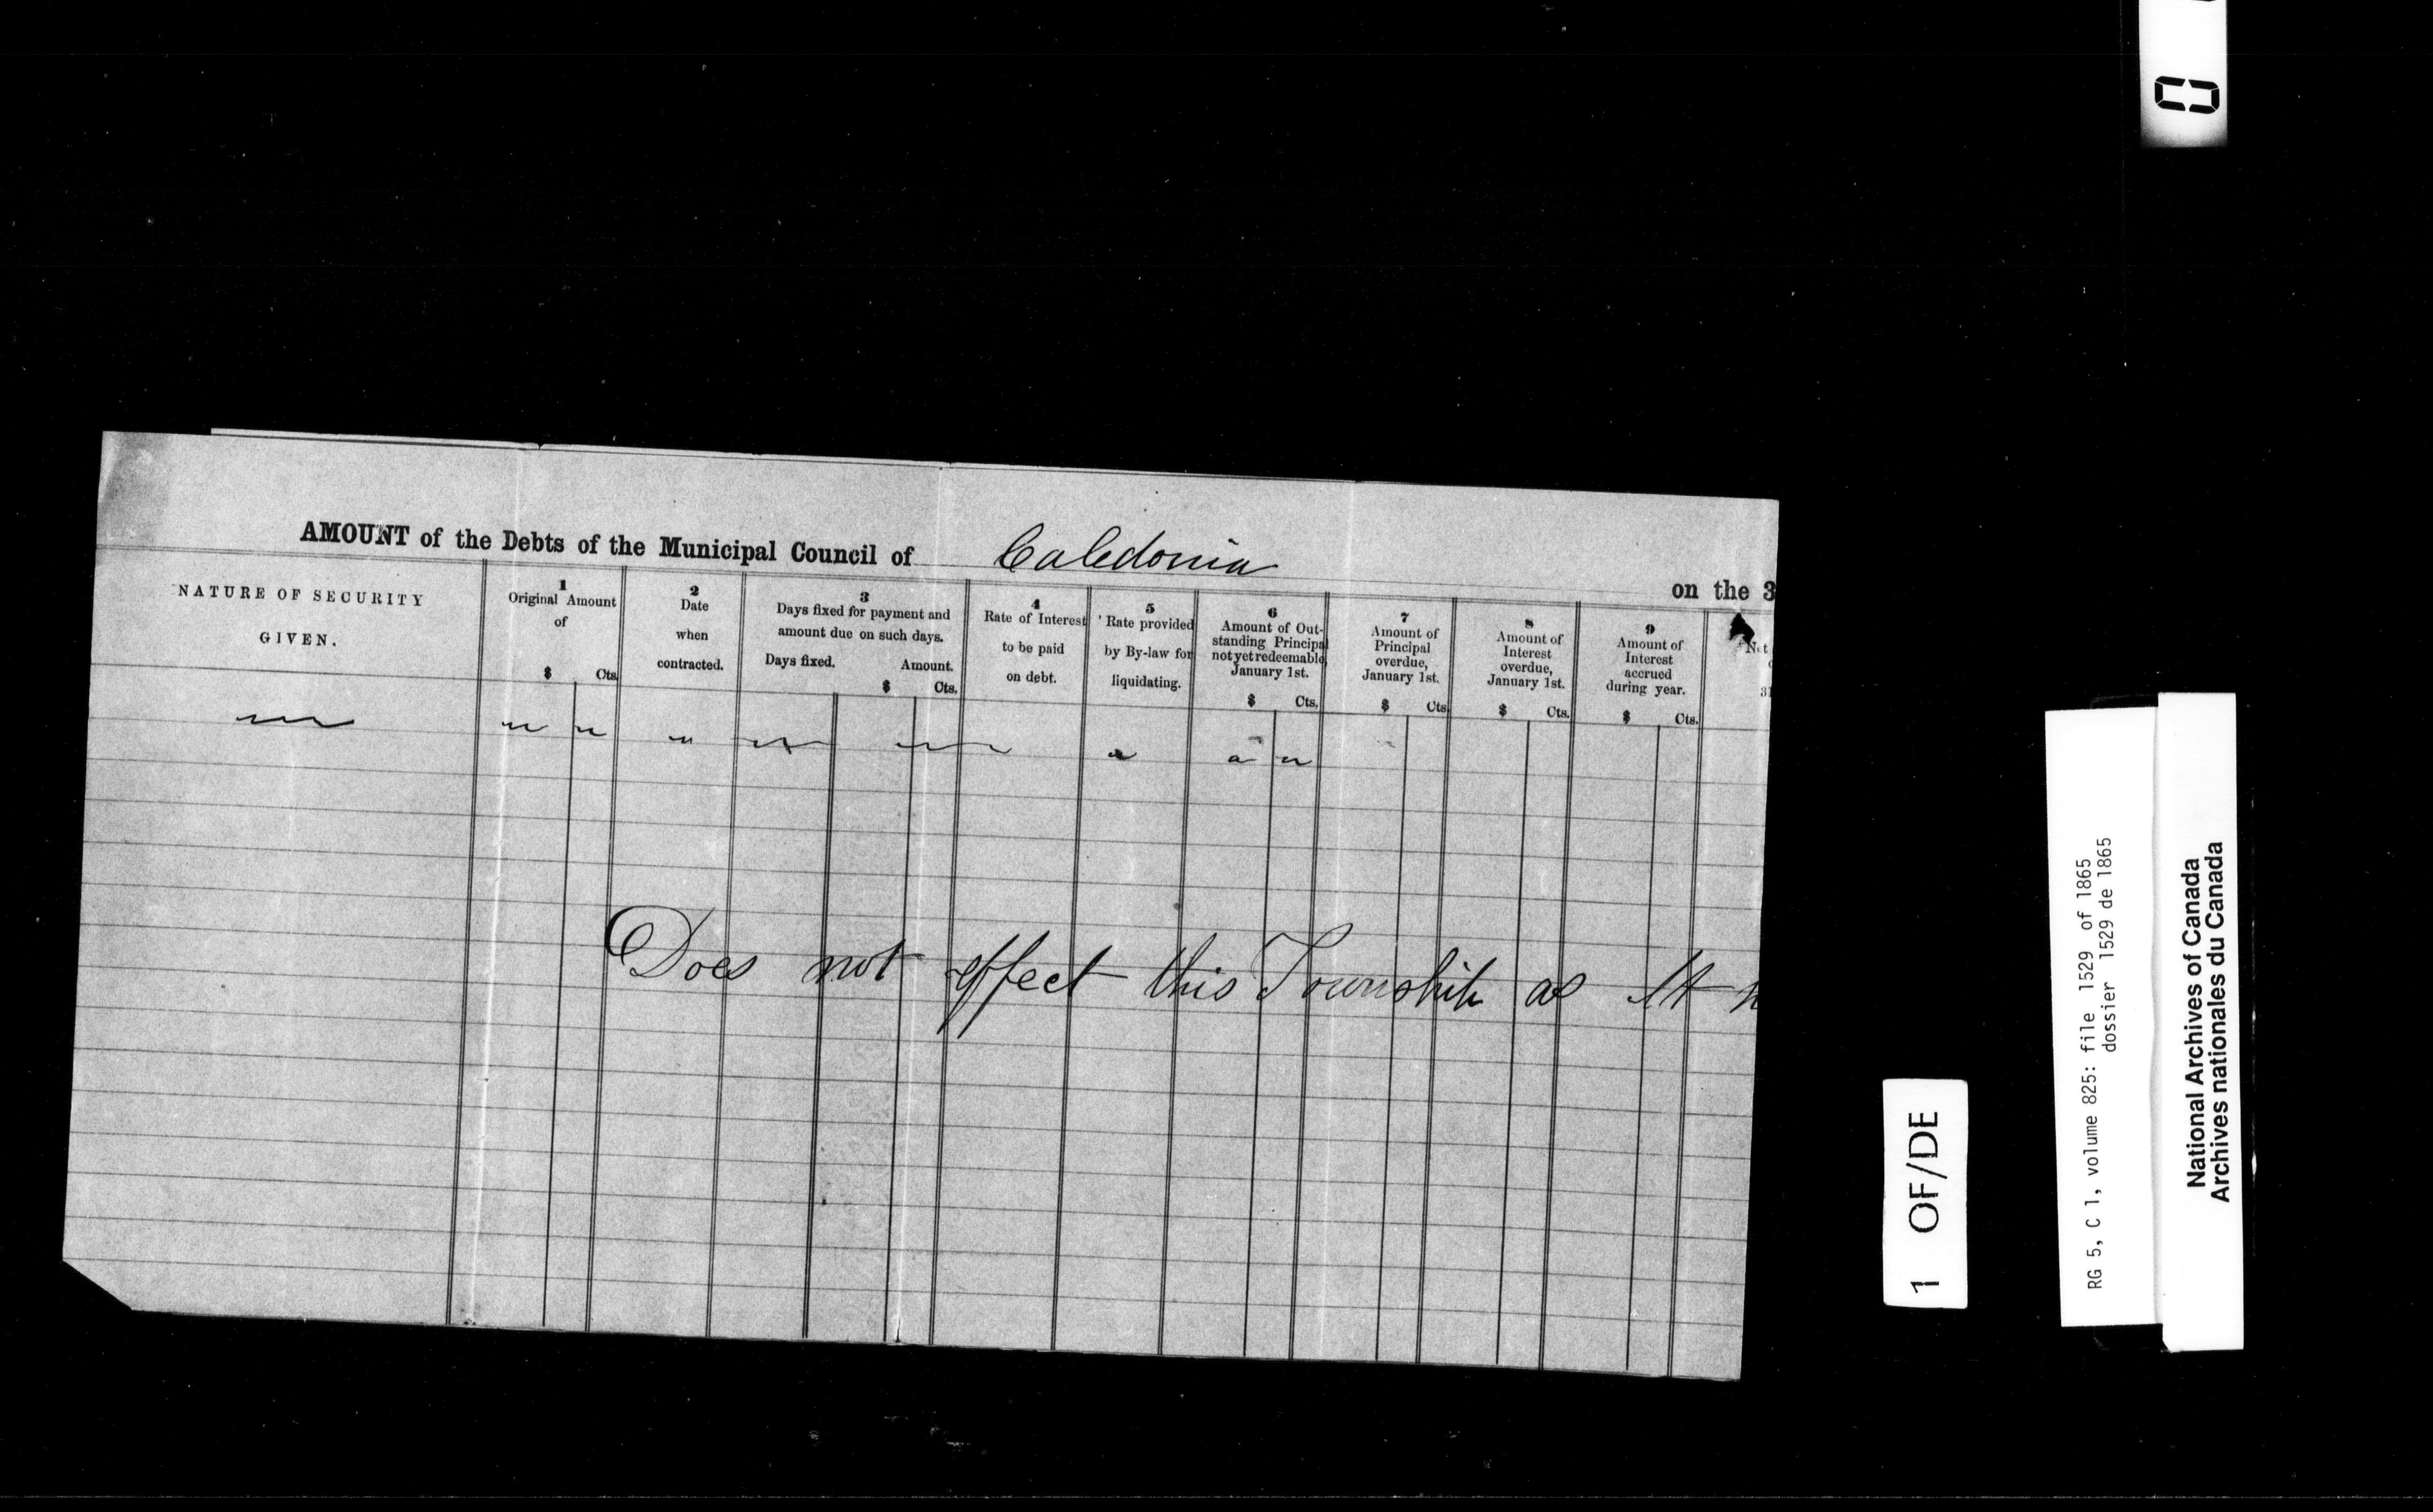 AMOUNT of the Debts of the Municipal Council of Caledonia on the 3
NATURE OF SECURITY
GIVEN.
1
Original Amount
of
$ Cts.
2
Date
when
contracted.
3
Days fixed for payment and
amount due on such days.
Days fixed. Amount.
$ Cts.
4
Rate of Interest
to be paid
on debt.
5
Rate provided
by By-law for
liquidating.
6
Amount of Out-
standing Principal
not yet redeemable,
January 1st.
$ Cts.
7
Amount of
Principal
overdue,
January 1st.
$ Cts.
8
Amount of
Interest
overdue,
January 1st.
$ Cts.
9
Amount of
Interest
accrued
during year.
$ Cts.
Net
31
Does not effect this Township as It
1 OF/DE
RG 5, C 1, volume 825: file 1529 of 1865
dossier 1529 de 1865
National Archives of Canada
Archives nationales du Canada
0